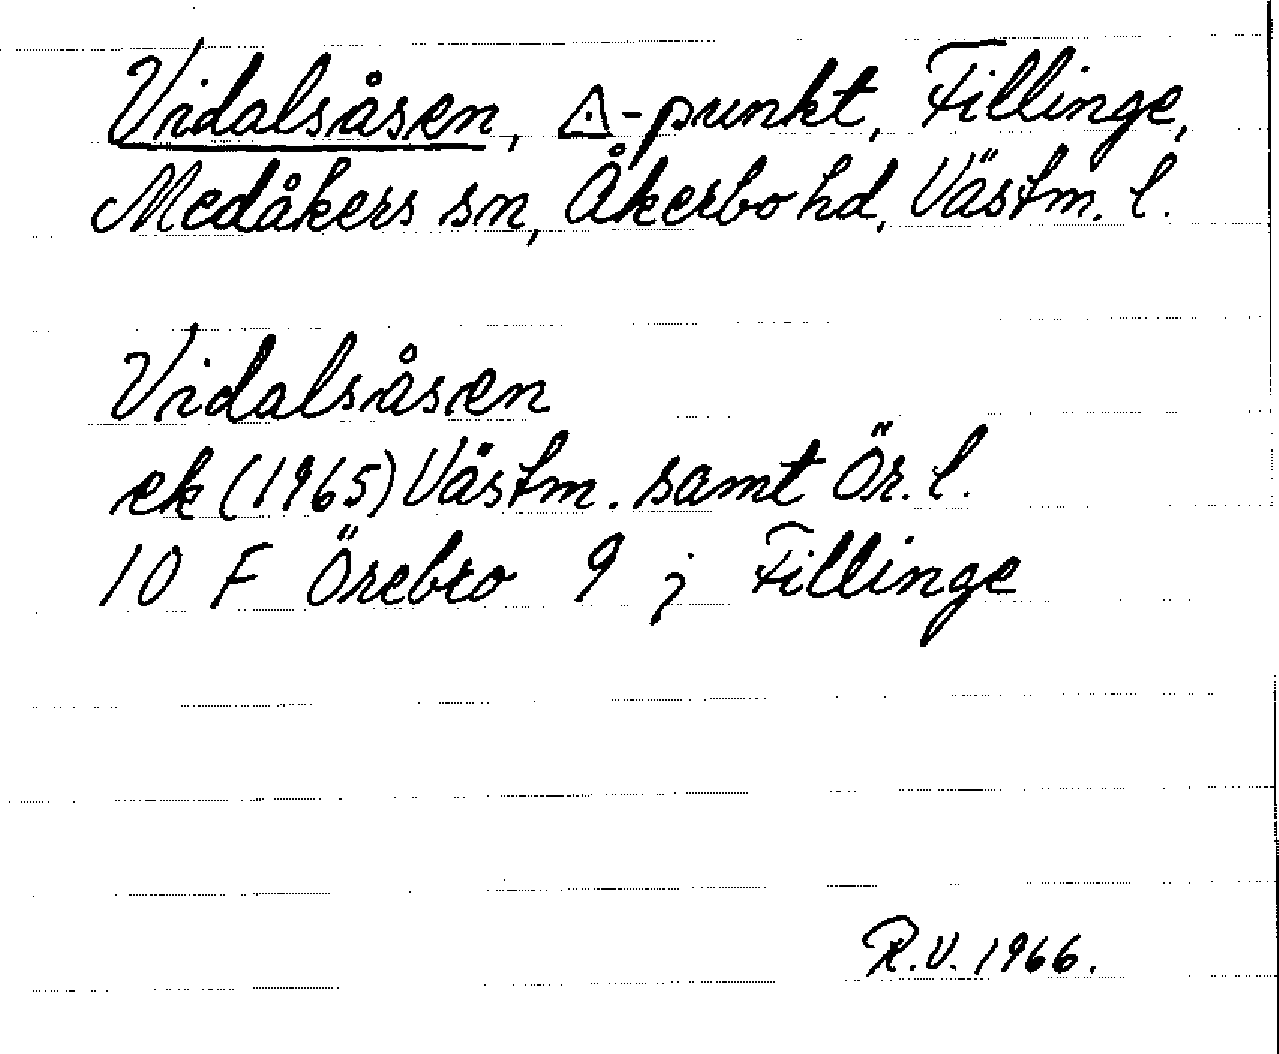 Vidalsåsen, ◬-punkt, Fillinge,
Medåkers sn, Åkerbo hd, Västm. l.
Vidalsåsen
ek (1965) Västm. samt Ör. l.
10 F Örebro 9 j Fillinge
R.V. 1966.